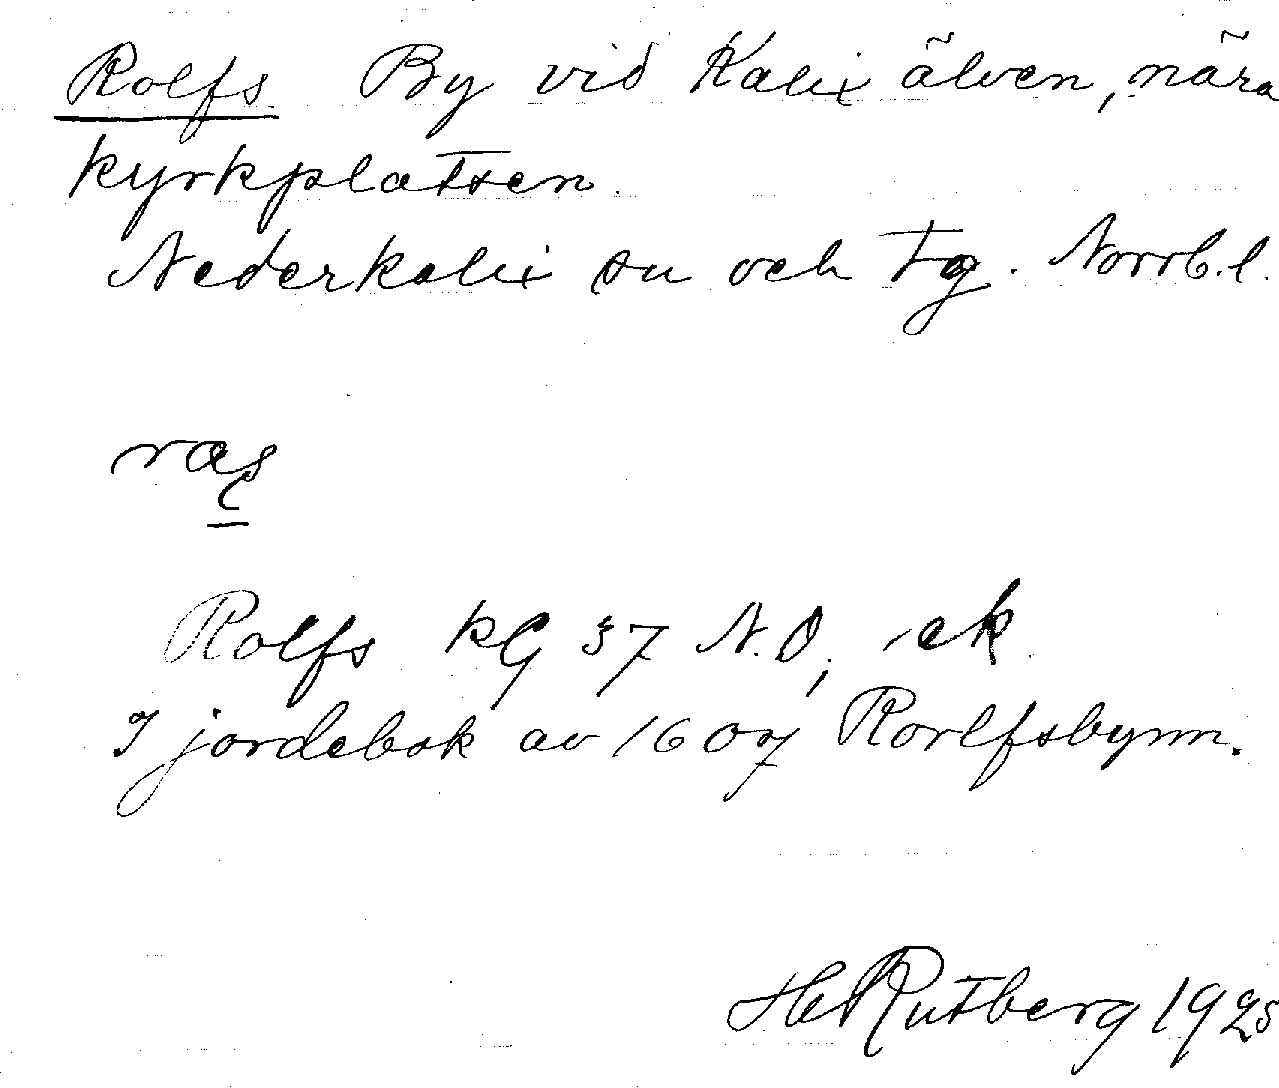 Rolfs By vid Kalix älven, nära
kyrkplatsen.
Nederkalix sn och Tg. Norrb. l.
Rolfs KG 37 N.D, ek
I jordebok av 1607 Rorlfsbynn.
HRutberg 1925